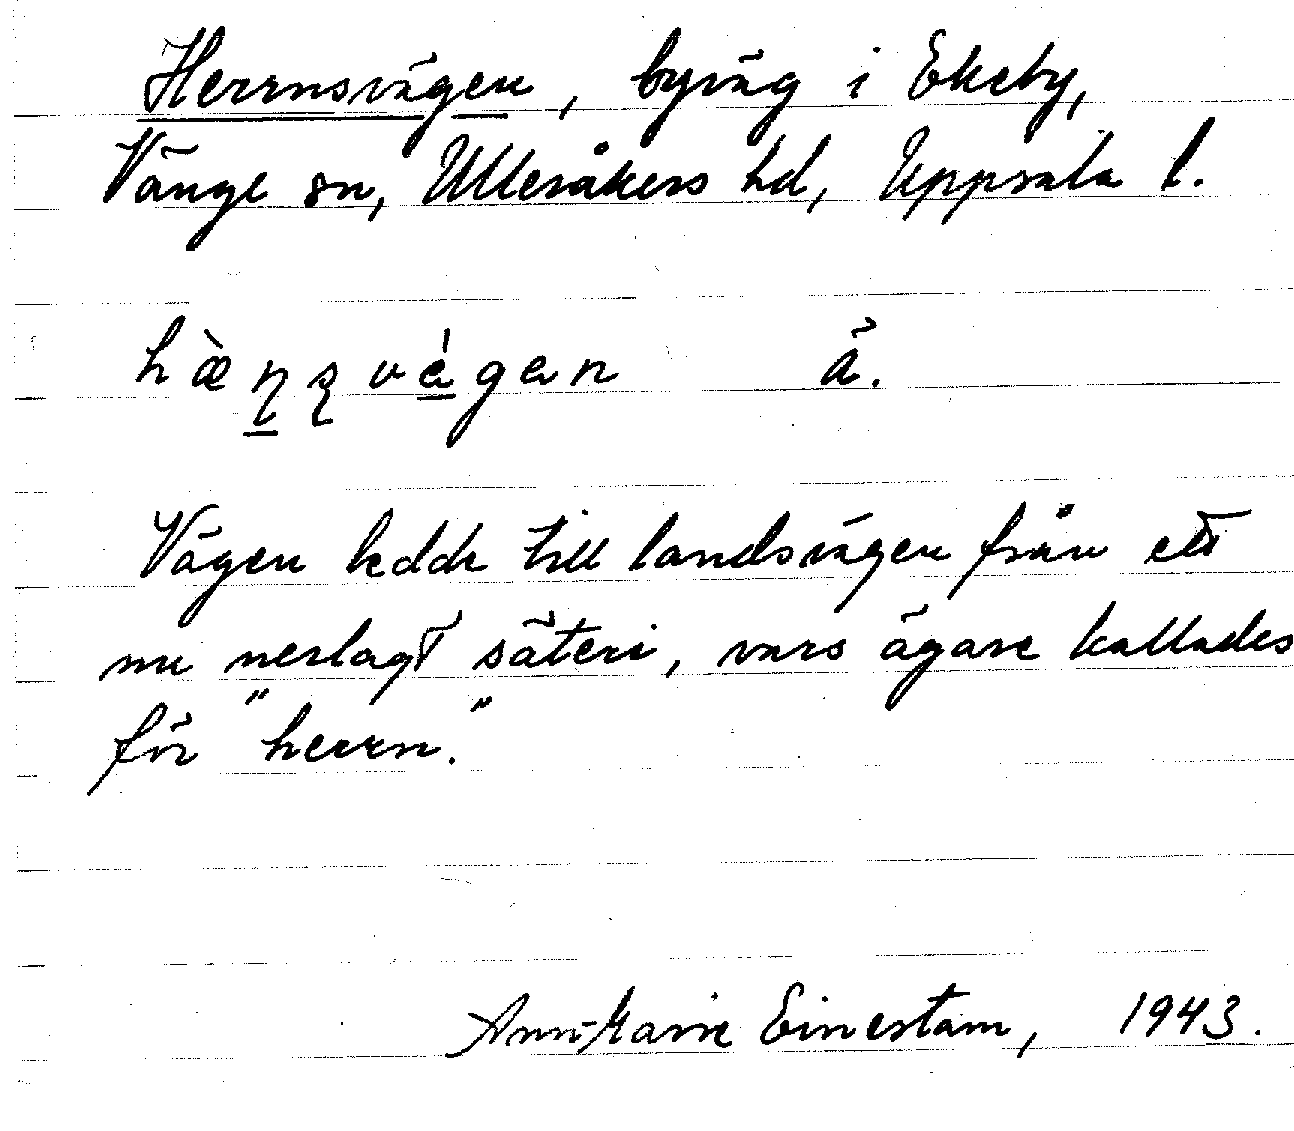 Herrnsvägen, byväg i Ekeby,
Vänge sn, Ulleråkers hd, Uppsala l.
hæ̀ɳʂvégen ä.
Vägen ledde till landsvägen från ett
nu nerlagt säteri, vars ägare kallades
för "herrn."
Ann-Marie Einestam, 1943.